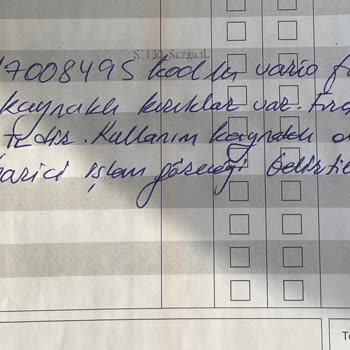 S.T.K. Sezgin L
17008495 kodlu vario f
kaynaklı kırıklar var. Fırç
Kullanım kaynaklı o
harici işlem göreceği belirtil
T